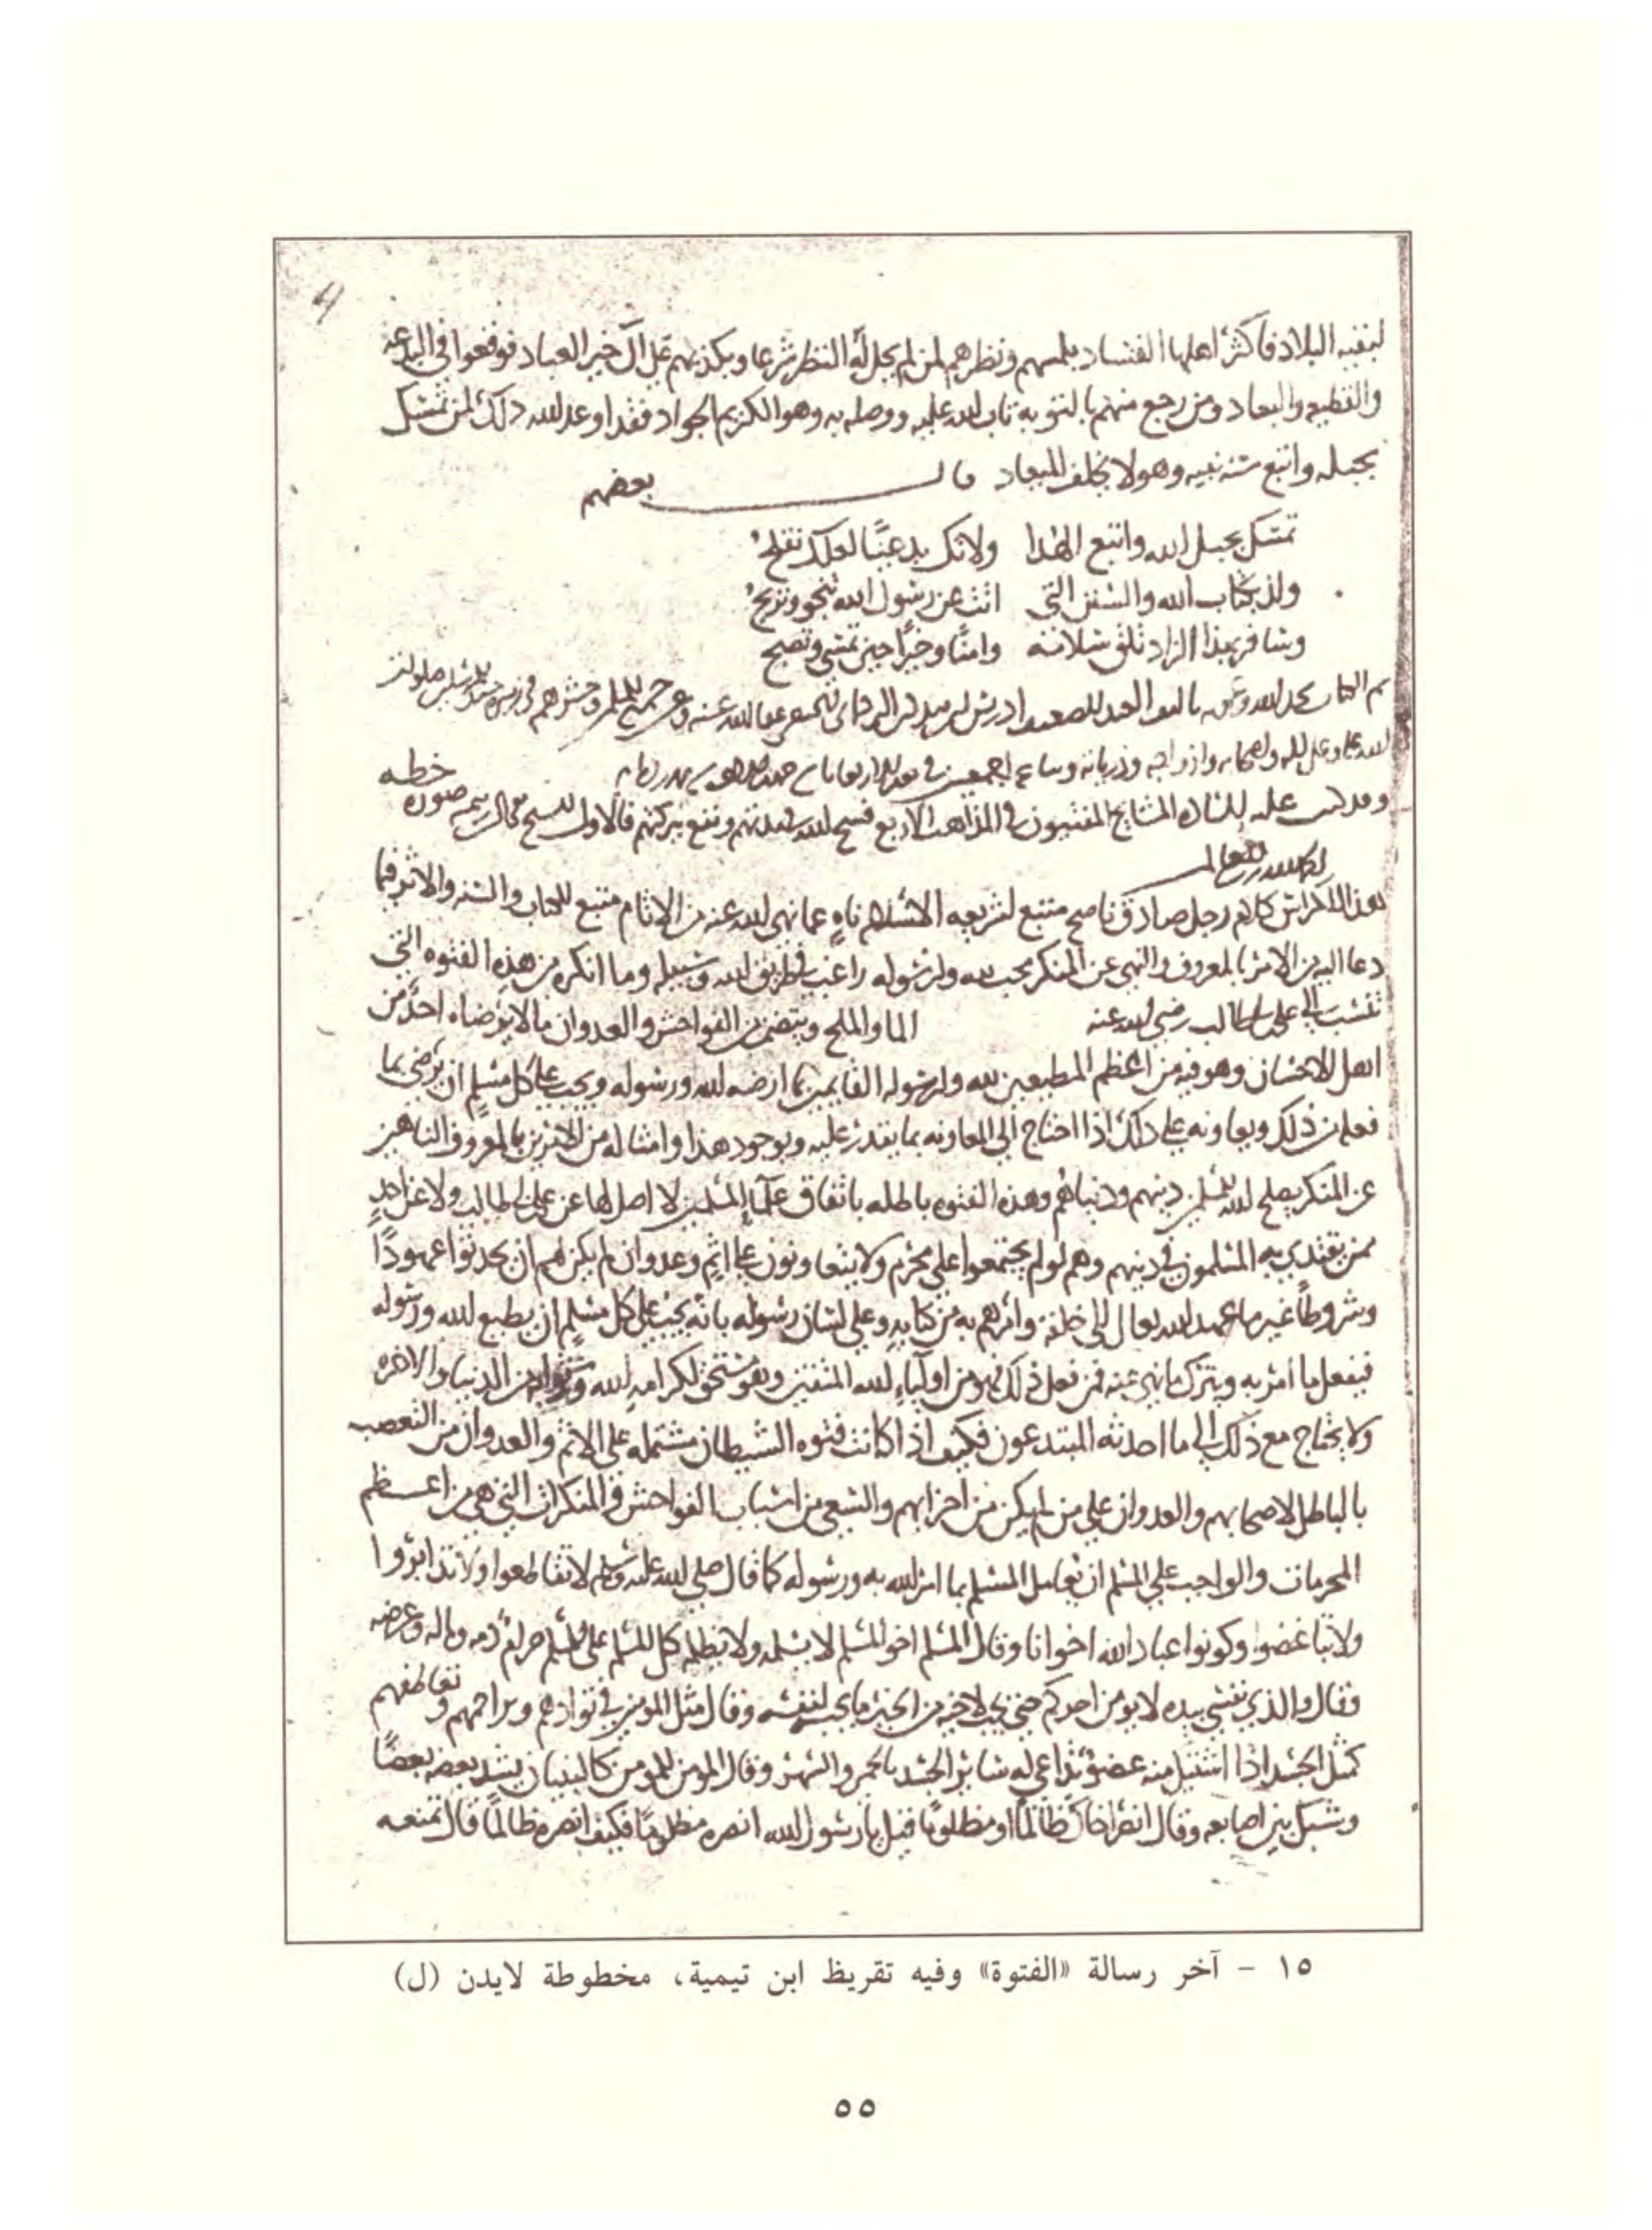 لبقيه البلاد فاكثر اهلها الفساد بلمسهم ونظرهم لمن لم يحل له النظر شرعا وبكذبهم على آل خير العباد فوقعوا في البدعه
والقطيعه والبعاد ومن رجع منهم بالتوبه تاب الله عليه ووصله به وهو الكريم الجواد فقد اوعد الله ذلك لمن تمسك
بحبله واتبع سنه نبيه وهو لا يخلف الميعاد قال بعضهم
تمسك بحبل الله واتبع الهدا ولا تك بدعيًا لعلك تفلح
ولذ بكتاب الله والسنن التي اتت عن رسول الله تنجو وتربح
وسافر بهذا الزاد تلق سلامه وامنًا وخيرًا حين تمسي وتصبح
تم الكتاب بحمد الله وعونه
الله عليه وعلى اله واصحابه وازواجه وذرياته وسلم اجمعين
وقد كتب عليه الساده المشايخ المفتيون في المذاهب الاربع فسح الله في مدتهم ونفع ببركتهم قال الاول صوره خطه
هذا الكراس كلام رجل صادق ناصح متبع لشريعه الاسلام ناهٍ عما نهى الله عنه من الاثام متبع للكتاب والسنه والاثر فيما
دعا اليه من الامر بالمعروف والنهي عن المنكر محب لله ولرسوله راغب في طريق الله وسبيله وما انكره من هذه الفتوه التي
تنسب الى علي بن ابي طالب رضي الله عنه الما والملح ويتضمن من الفواحش والعدوان ما لا يرضاه احد من
اهل الاحسان وهو فيه من اعظم المطيعين لله ولرسوله القايمين بما ارضه لله ورسوله ويجب على كل مسلم ان يرضى بما
فعله من ذلك ويعاونه على ذلك اذا احتاج الى المعاونه بما يقدر عليه وبوجود هذا وامثاله من الامرين بالمعروف والناهين
عن المنكر يصلح الله للمسلمين دينهم ودنياهم وهذه الفتوه باطله باتفاق علماء المسلمين لا اصل لها عن علي بن ابي طالب ولا عن احدٍ
ممن يقتدي به المسلمون في دينهم وهم لو لم يجتمعوا على محرم ولا يتعاونون على اثم وعدوان لم يكن لهم ان يحدثوا عهودًا
وشروطًا غير ما عهد الله تعالى الى خلقه وامرهم به من كتابه وعلى لسان رسوله بانه يجب على كل مسلم ان يطيع لله ورسوله
فيفعل ما امر به ويترك ما نهي عنه فمن فعل ذلك فهو من اولياء الله المتقين وهو مستحق لكرامه الله وثوابه من الدنيا والاخره
ولا يحتاج مع ذلك الى ما احدثه المبتدعون فكيف اذا كانت فتوه الشيطان مشتمله على الاثم والعدوان من التعصب
بالباطل لاصحابهم والعدوان على من لم يكن من احزابهم والسعي من اسباب الفواحش والمنكرات التي هي من اعظم
المحرمات والواجب على المسلم ان يعامل المسلم بما امر الله به ورسوله كما قال صلى الله عليه وسلم لا تقاطعوا ولا تدابروا
ولا تباغضوا وكونوا عباد الله اخوانا وقال المسلم اخو المسلم لا يسلمه ولا يظلمه كل المسلم على المسلم حرام دمه وماله وعرضه
وقال والذي نفسي بيده لا يومن احدكم حتى يحب لاخيه من الخير ما يحب لنفسه وقال مثل المومنين في توادهم وتراحمهم وتعاطفهم
كمثل الجسد اذا اشتكى منه عضو تداعى له سائر الجسد بالحمى والسهر وقال المومن للمومن كالبنيان يشد بعضه بعضًا
وشبك بين اصابعه وقال انصر اخاك ظالمًا او مظلومًا قيل يا رسول الله انصره مظلومًا فكيف انصره ظالمًا قال تمنعه
١٥ - آخر رسالة «الفتوة» وفيه تقريظ ابن تيمية، مخطوطة لايدن (ل)
٥٥